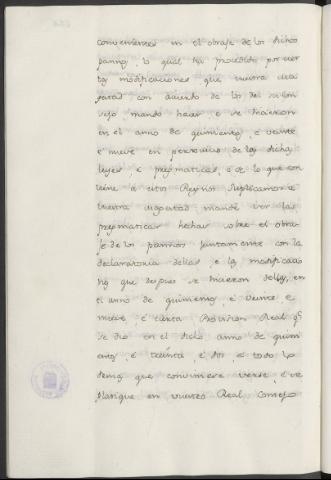 convenientes en el obraje de los dichos
paños, lo qual ha procedido por ser
las modificaciones que vuestra
con acuerdo de los del su con
sejo mando hacer e se hicieron
en el anno de quinientos, e veinte
e nueve en perxuicio de las dichas
leyes e prematicas, e de lo que con
viene à estos Reynos Suplicamos a
vuestra Magestad mande ver las
pregmaticas hechas sobre el obra-
je de los paños juntamente con la
declaratoria dellas e las modificacio
nes que despues se hicieron dellas, en
el anno de quinientos, e veinte, e
nueve, e cierta Provision Real q.e
se dio en el dicho anno de quini
entos, e treinta, e dos, e todo lo
demas que conviniere verse, e se
platique en vuestro Real Consejo